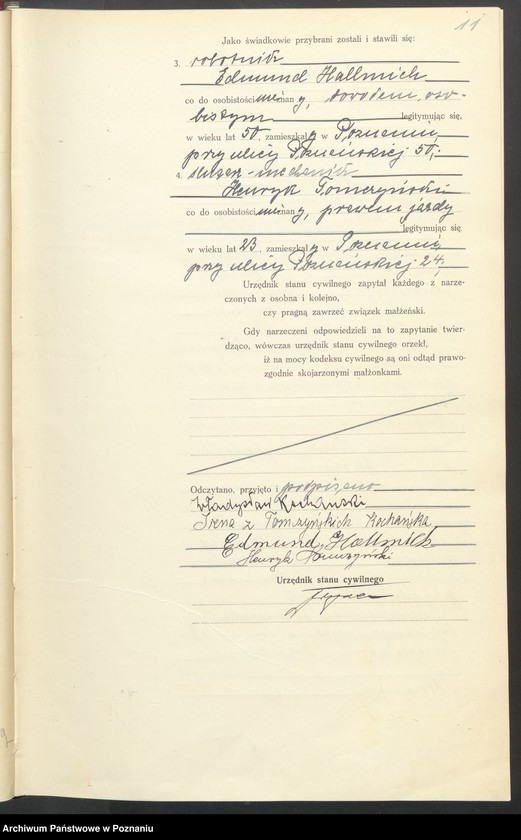 11
Jako świadkowie przybrani zostali i stawili się:
3. robotnik
Edmund Hallmich
co do osobistości nieznany, dowodem oso-
bistym legitymując się,
w wieku lat 50, zamieszkały w Poznaniu,
przy ulicy Poznańskiej 50;
4. ślusarz-mechanik
Henryk Tomczyński
co do osobistości nieznany, prawem jazdy
legitymując się
w wieku lat 23, zamieszkały w Poznaniu,
przy ulicy Poznańskiej 24,
Urzędnik stanu cywilnego zapytał każdego z narze-
czonych z osobna i kolejno,
czy pragną zawrzeć związek małżeński.
Gdy narzeczeni odpowiedzieli na to zapytanie twier-
dząco, wówczas urzędnik stanu cywilnego orzekł,
iż na mocy kodeksu cywilnego są oni odtąd prawo-
zgodnie skojarzonymi małżonkami.
Odczytano, przyjęto i podpisano
Władysław Kochański
Irena z Tomczyńskich Kochańska
Edmund Hallmich
Henryk Tomczyński
Urzędnik stanu cywilnego
Archiwum Państwowe w Poznaniu